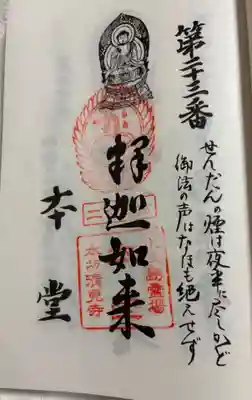 第二十三番
せんだんの煙は夜半に尽しかど
御法の声はなほも絶えせず
釋迦如来
本堂
島霊場
清見寺